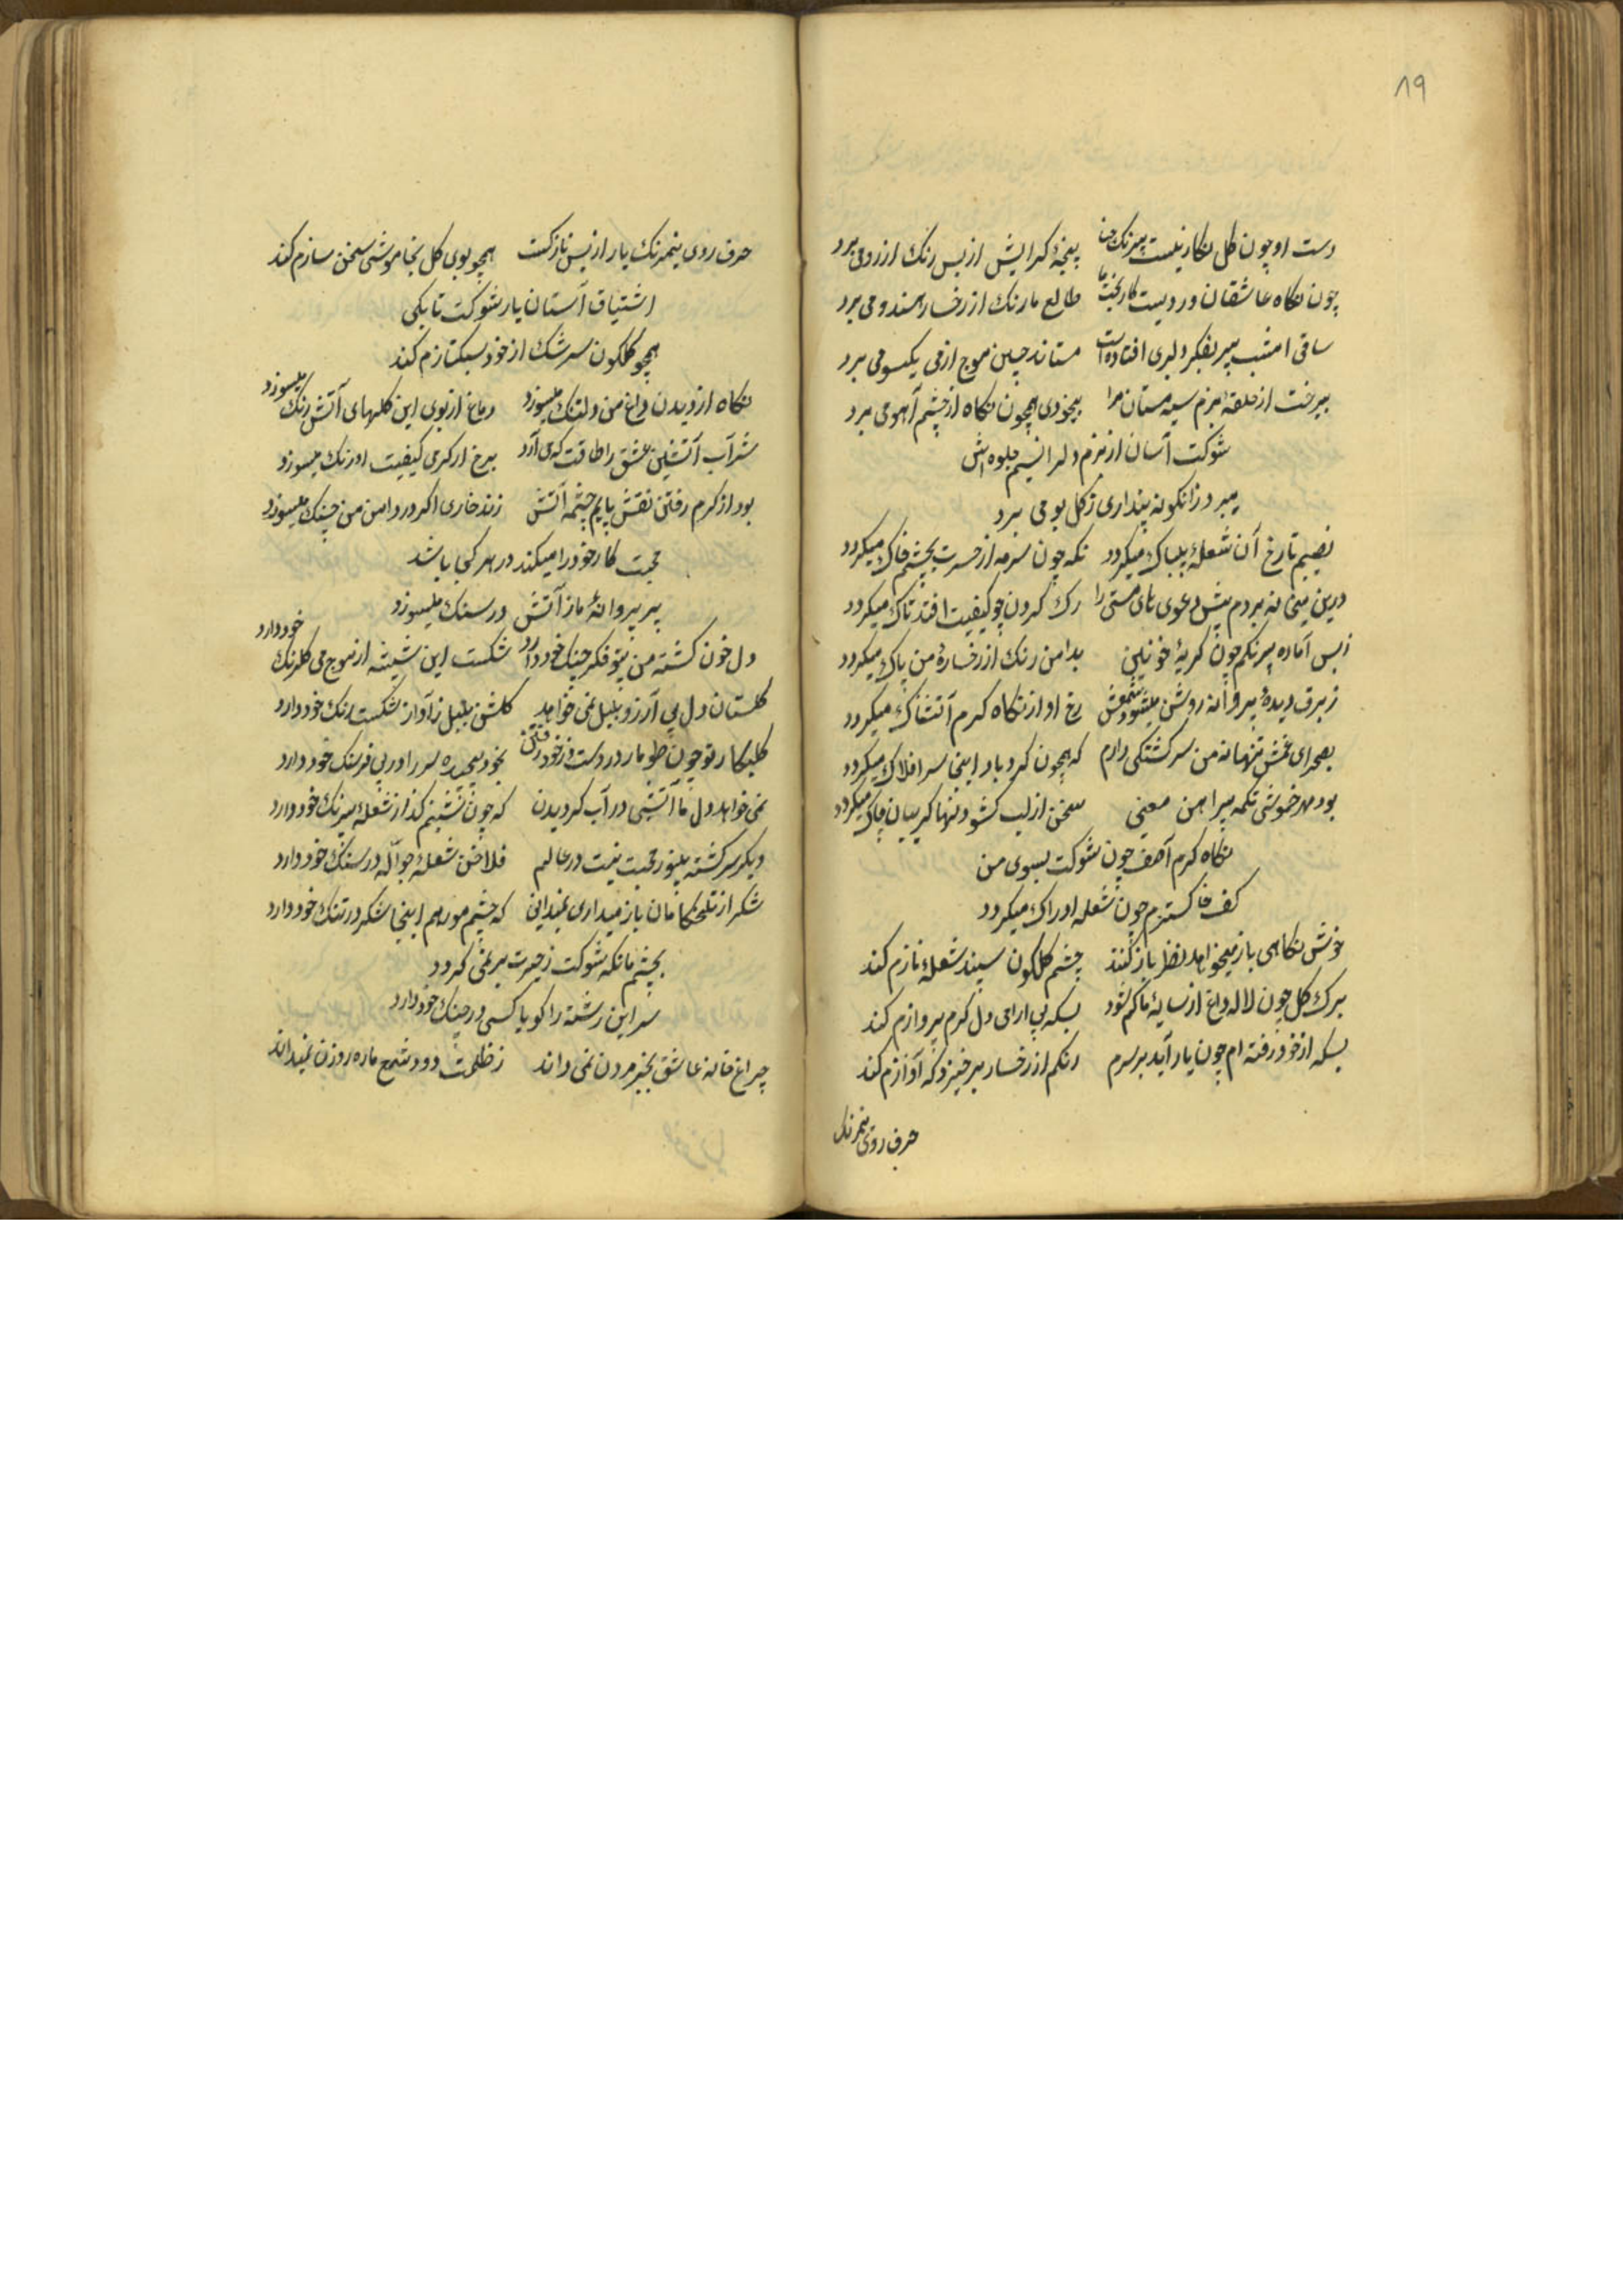 ۸۹
دست او چون گل نگارینست بیرنک حنا پنجهٔ گیرایش از بس رنک از رو می برد
چون نگاه عاشقان در دست کار بخت ما طالع ما رنک از رخسار هندو می برد
ساقی امشب بپر بفکر دلبری افتاده است مستانه چین موج از می یکسو می برد
میرخت از حلقه بزم سیه مستان مرا بیخودی همچون نگاه از چشم آهو می برد
شوکت آسان از بزم دلها نسیم جلوه اش
میبرد زانکونه پنداری ز کل بو می برد
نصیبم تا رخ آن شعلهٔ بیباک میکردد نکه چون سرمه از حسرت بچشمم خاک میکردد
درین میخانه بردم پیش دعوی های مستی را رک کردن چو کیفیت افتد تاک میکردد
ز بس آماده بیرنکم چون کریهٔ خونین بدامن رنک از رخسارهٔ من پاک میکردد
ز برق دیدهٔ پروانه روشن میشود شمعش رخ او از نکاه کرم آتشناک میکردد
بصحرای غمش تنها نه من سرکشتکی دارم که همچون کردباد اینجا سر افلاک میکردد
بود مهر خموشی تکمه پیراهن معنی سخن از لب کشودنها کریبان چاک میکردد
نکاه کرم آصف چون شوکت بسوی من
کف خاکسترم چون شعله ادراک میکردد
خوش نکاهی باز میخواهد نظر بازم کند چشم کلکون سپند شعلهٔ نازم کند
برک کل چون لاله داغ از سایهٔ ما کم شود بسکه بی ارای دل کرم پروازم کند
بسکه از خود رفته ام چون یار آید بر سرم رنکم از رخسار برخیزد که آوازم کند
حرف روی نیمرنک
حرف روی نیمرنک یار از بس نازکست همچو بوی کل بخاموشی سخن سازم کند
اشتیاق آستان یار شوکت تا بکی
همچو کلکون سرشک از خود سبکتازم کند
نکاه از دیدن داغ من دلتنک میسوزد دماغ از بوی این کلهای آتش رنک میسوزد
شراب آتشین عشق را طاقت که می آرد برخ از کرمی کیفیت او رنک میسوزد
بود از کرم رفتن نقش پایم چشمه آتش زند خاری اکر در دامن من چنک میسوزد
محبت کار خود را میکند در هر کجا باشد
پر پروانهٔ ما از آتش در سنک میسوزد
دل خون کشته من بتو فکر جنک خود دارد شکست این شیشه از موج می کلرنک خود دارد
کلستان دل بی آرزو بلبل نمی خواهد کلشن بلبل ز آواز شکست رنک خود دارد
طلبکار تو چون طومار در دست از خود رفتن بخود پیچیده سر را در پی فرسنک خود دارد
نمی خواهد دل ما آتشی در آب کردیدن که چون شبنم کداز شعلهٔ بیرنک خود دارد
دیکر سرکشته بیشور محبت نیست در عالم فلاخن شعلهٔ جوّاله در سنک خود دارد
شکر از تلخکامان باز میداری نمیدانی که چشم مور هم اینجا شکر در تنک خود دارد
بچشم ما نکه شوکت ز حیرت بر نمی کردد
سر این رشته را کویا کسی در چنک خود دارد
چراغ خانهٔ عاشق بجز مردن نمی داند ز ظلمت دود شمع ما ره روزن نمیداند